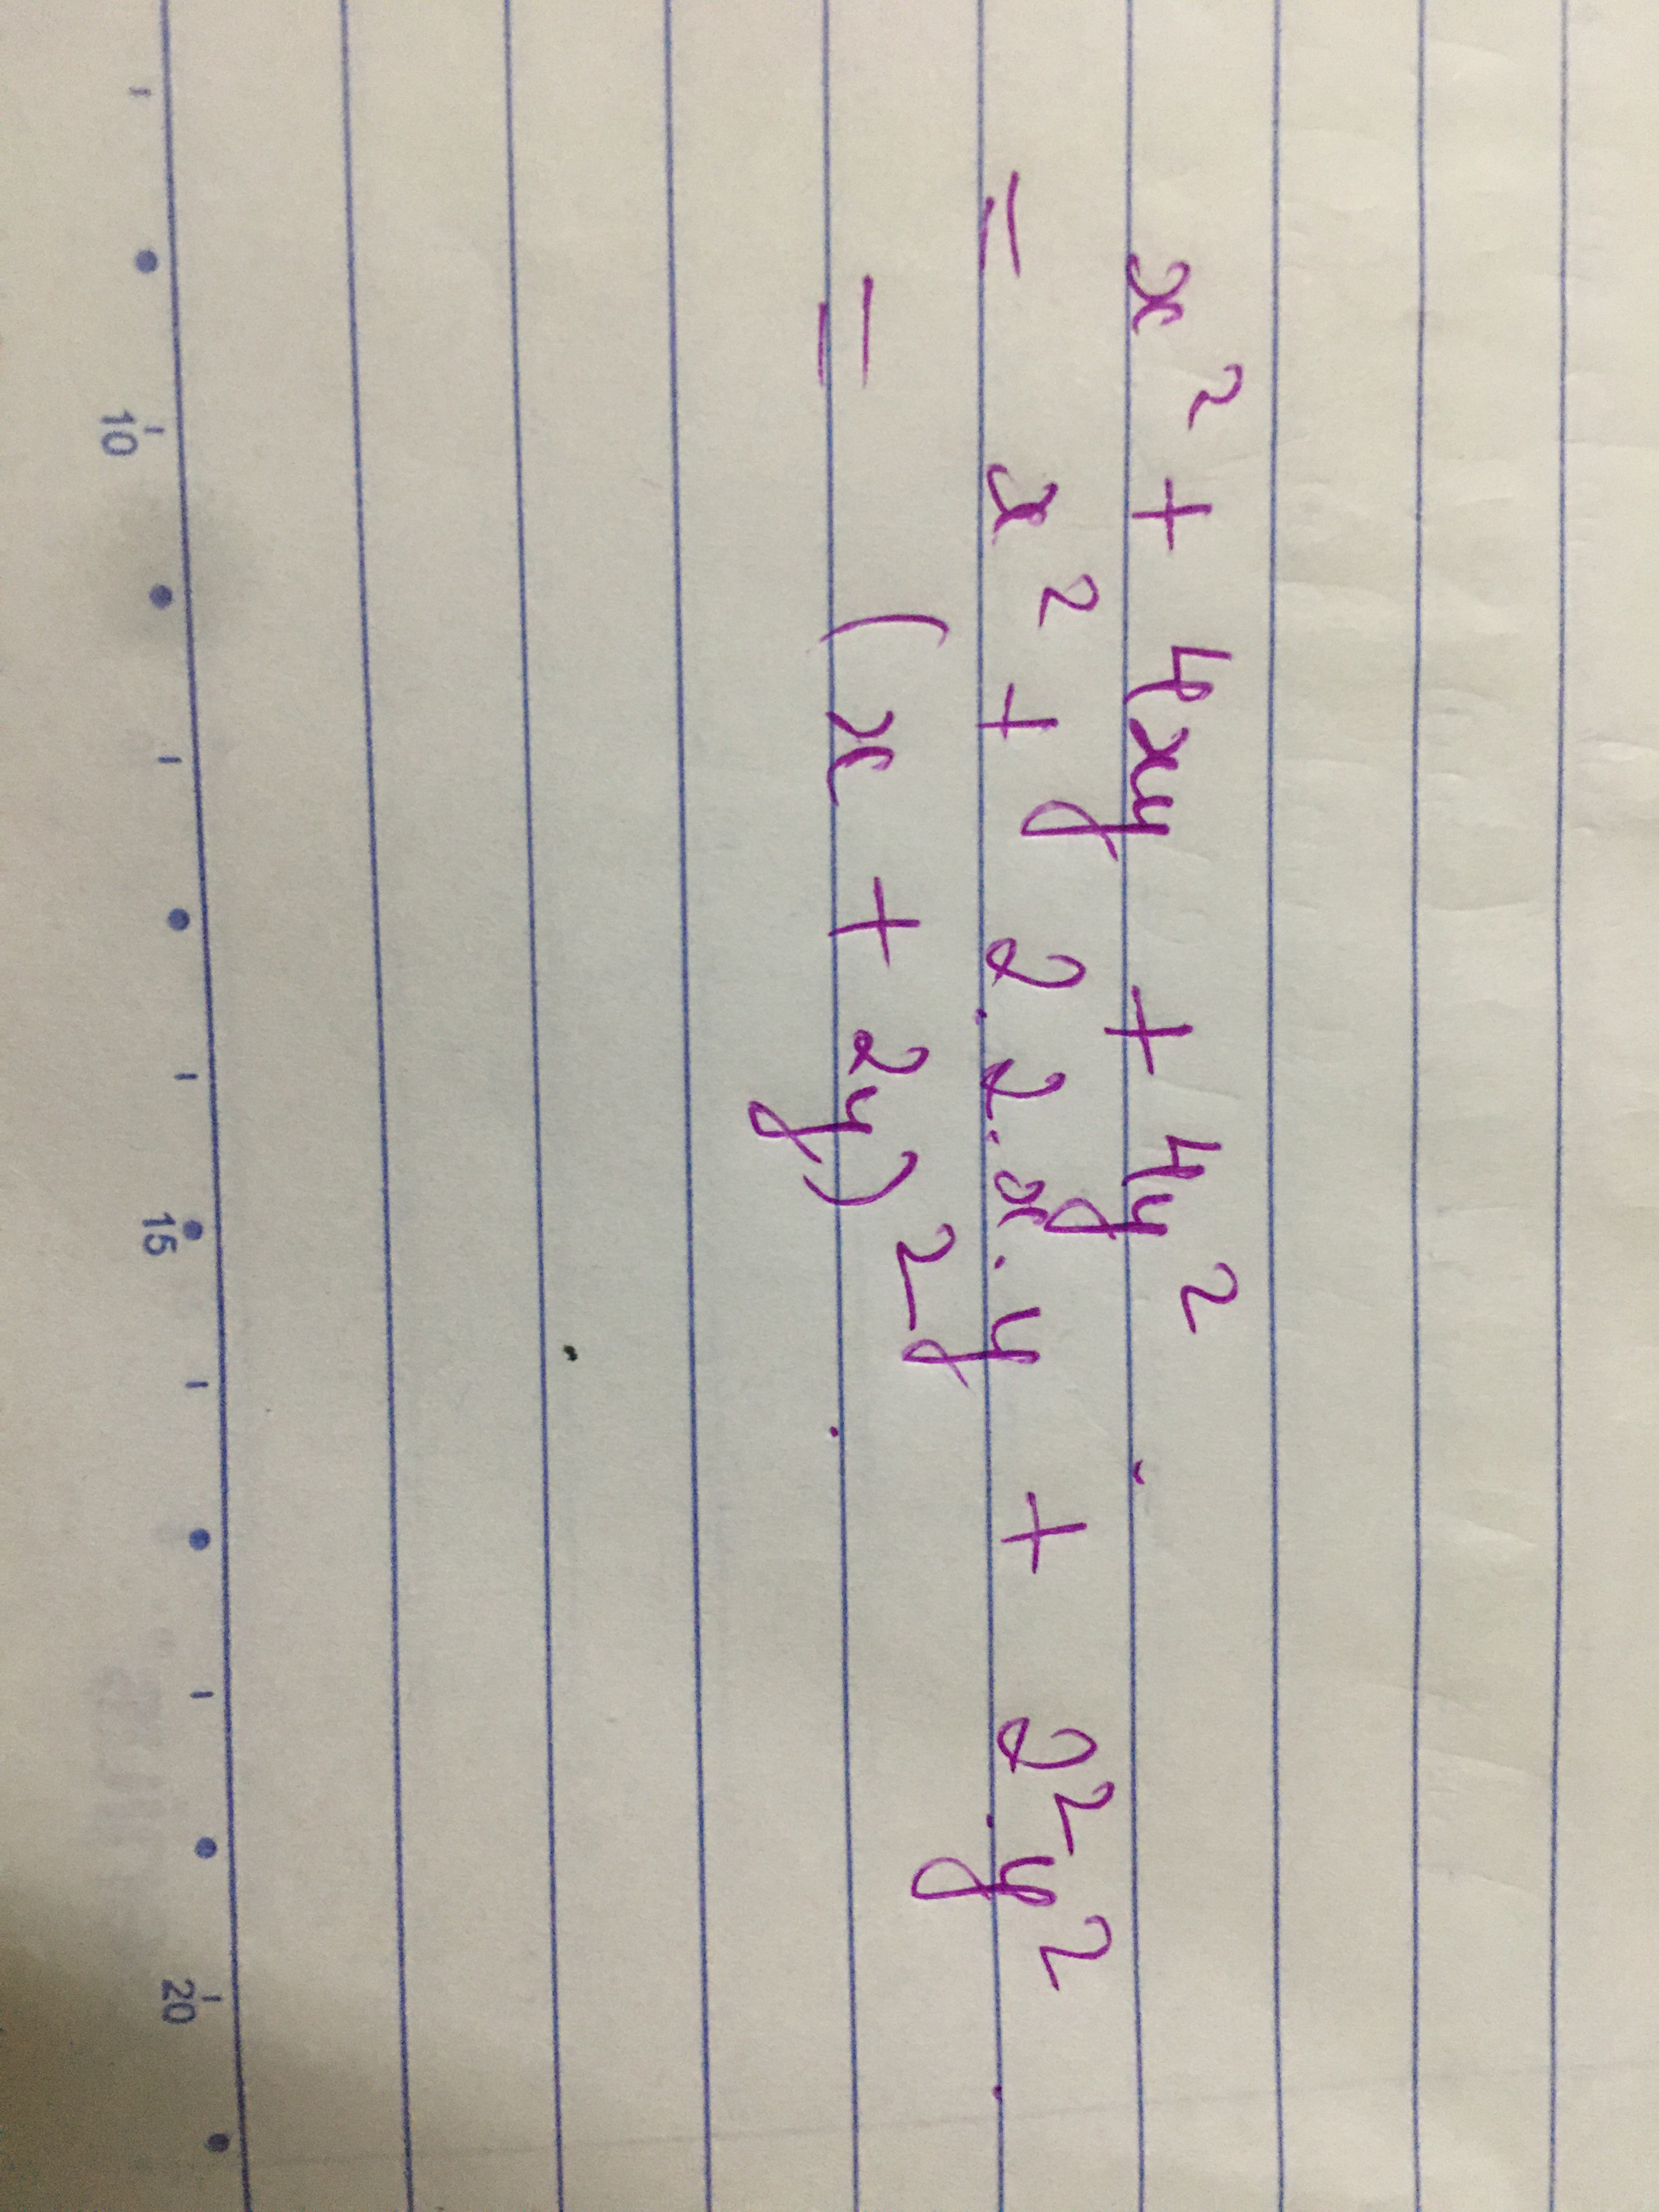 x² + 4xy + 4y².
= x² + 2.2.x.y + 2².y².
= (x + 2y)².
10 15 20